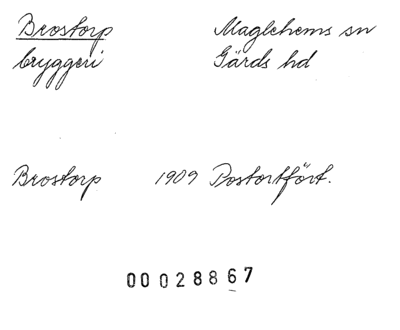 Brostorp Maglehems sn
bryggeri Gärds hd
Brostorp 1909 Postortfört.
00028867